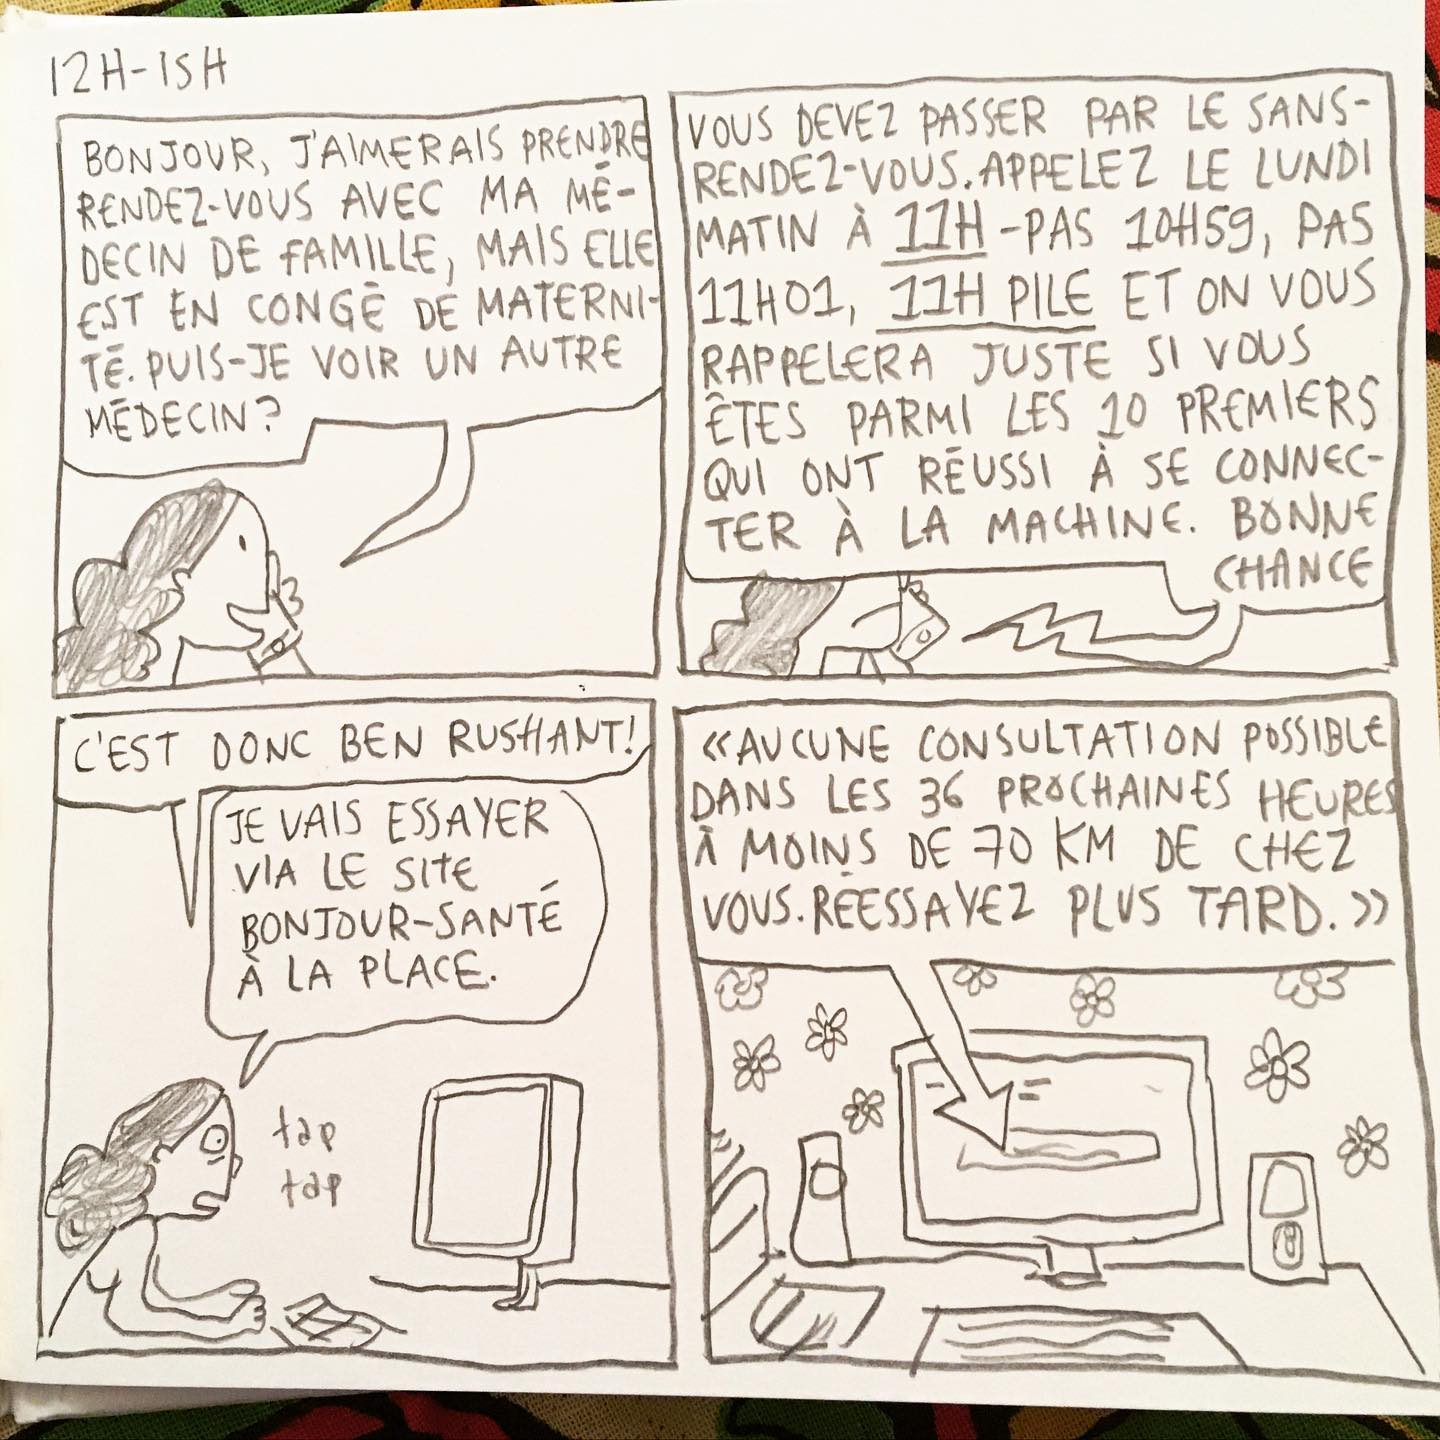 12H-ISH
BONJOUR, J'AIMERAIS PRENDRE
RENDEZ-VOUS AVEC MA MÉ-
DECIN DE FAMILLE, MAIS ELLE
EST EN CONGÉ DE MATERNI-
TÉ. PUIS-JE VOIR UN AUTRE
MÉDECIN?
VOUS DEVEZ PASSER PAR LE SANS-
RENDEZ-VOUS. APPELEZ LE LUNDI
MATIN À 11H - PAS 10H59, PAS
11H01, 11H PILE ET ON VOUS
RAPPELERA JUSTE SI VOUS
ÊTES PARMI LES 10 PREMIERS
QUI ONT RÉUSSI À SE CONNEC-
TER À LA MACHINE. BONNE
CHANCE
C'EST DONC BEN RUSHANT!
JE VAIS ESSAYER
VIA LE SITE
BONJOUR-SANTÉ
À LA PLACE.
tap
tap
«AUCUNE CONSULTATION POSSIBLE
DANS LES 36 PROCHAINES HEURES
À MOINS DE 70 KM DE CHEZ
VOUS. RÉESSAYEZ PLUS TARD.»